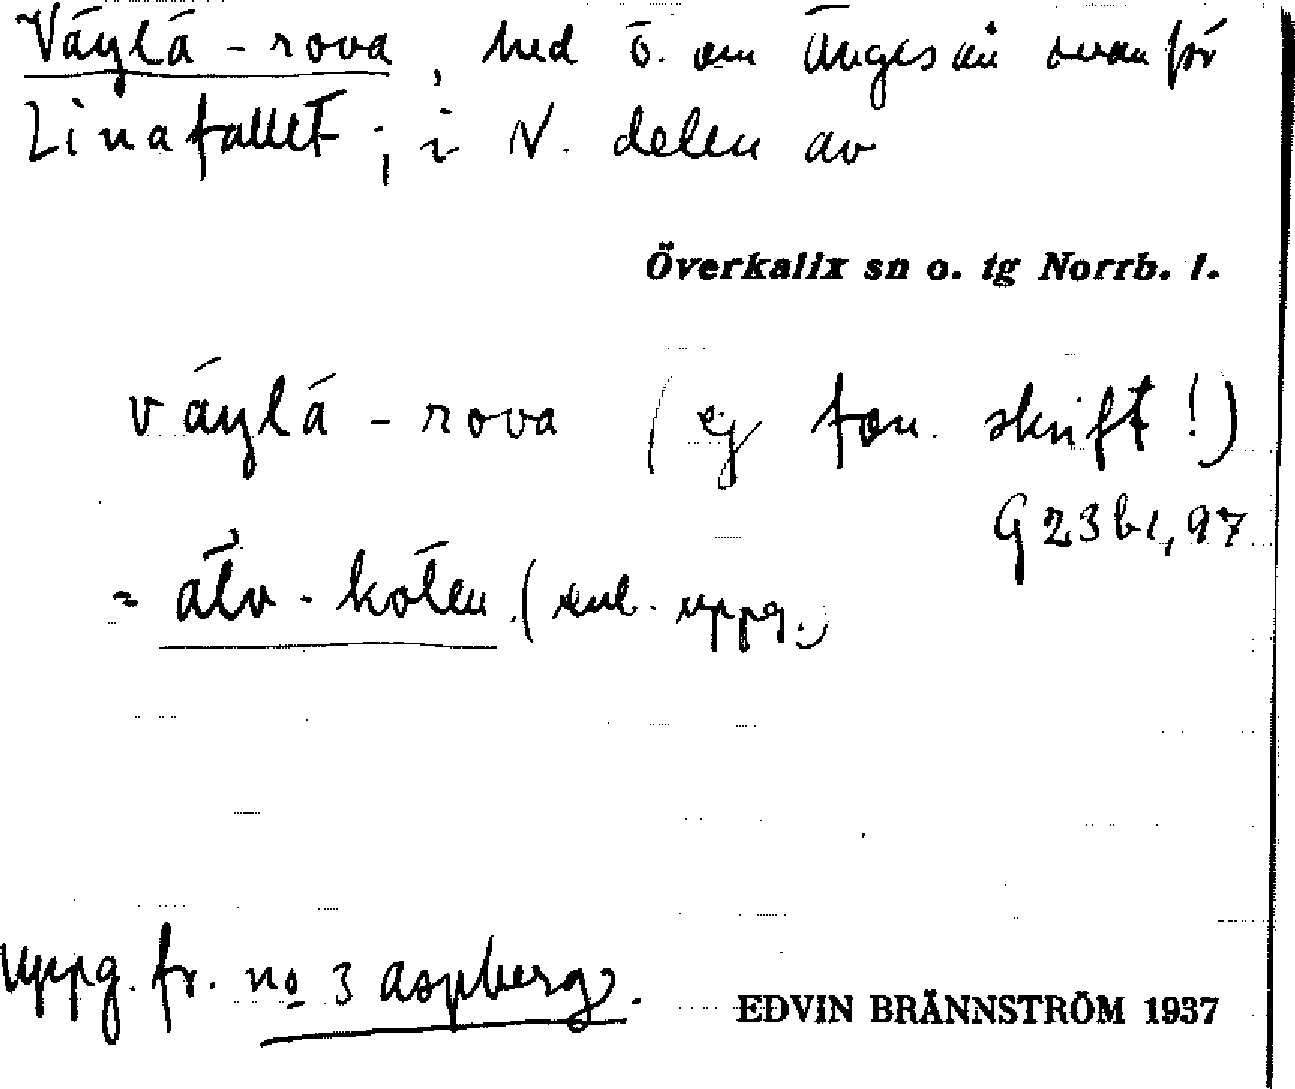 Väylä-rova, hed ö. om Ängesån ovanför
Linafallet; i N. delen av
Överkalix sn o. tg Norrb. l.
väylä-rova (ej fon. skrift!)
G 23 b1, 97
= älv-kölen. (enl. uppg.)
uppg. fr. no 3 aspberg.
EDVIN BRÄNNSTRÖM 1937